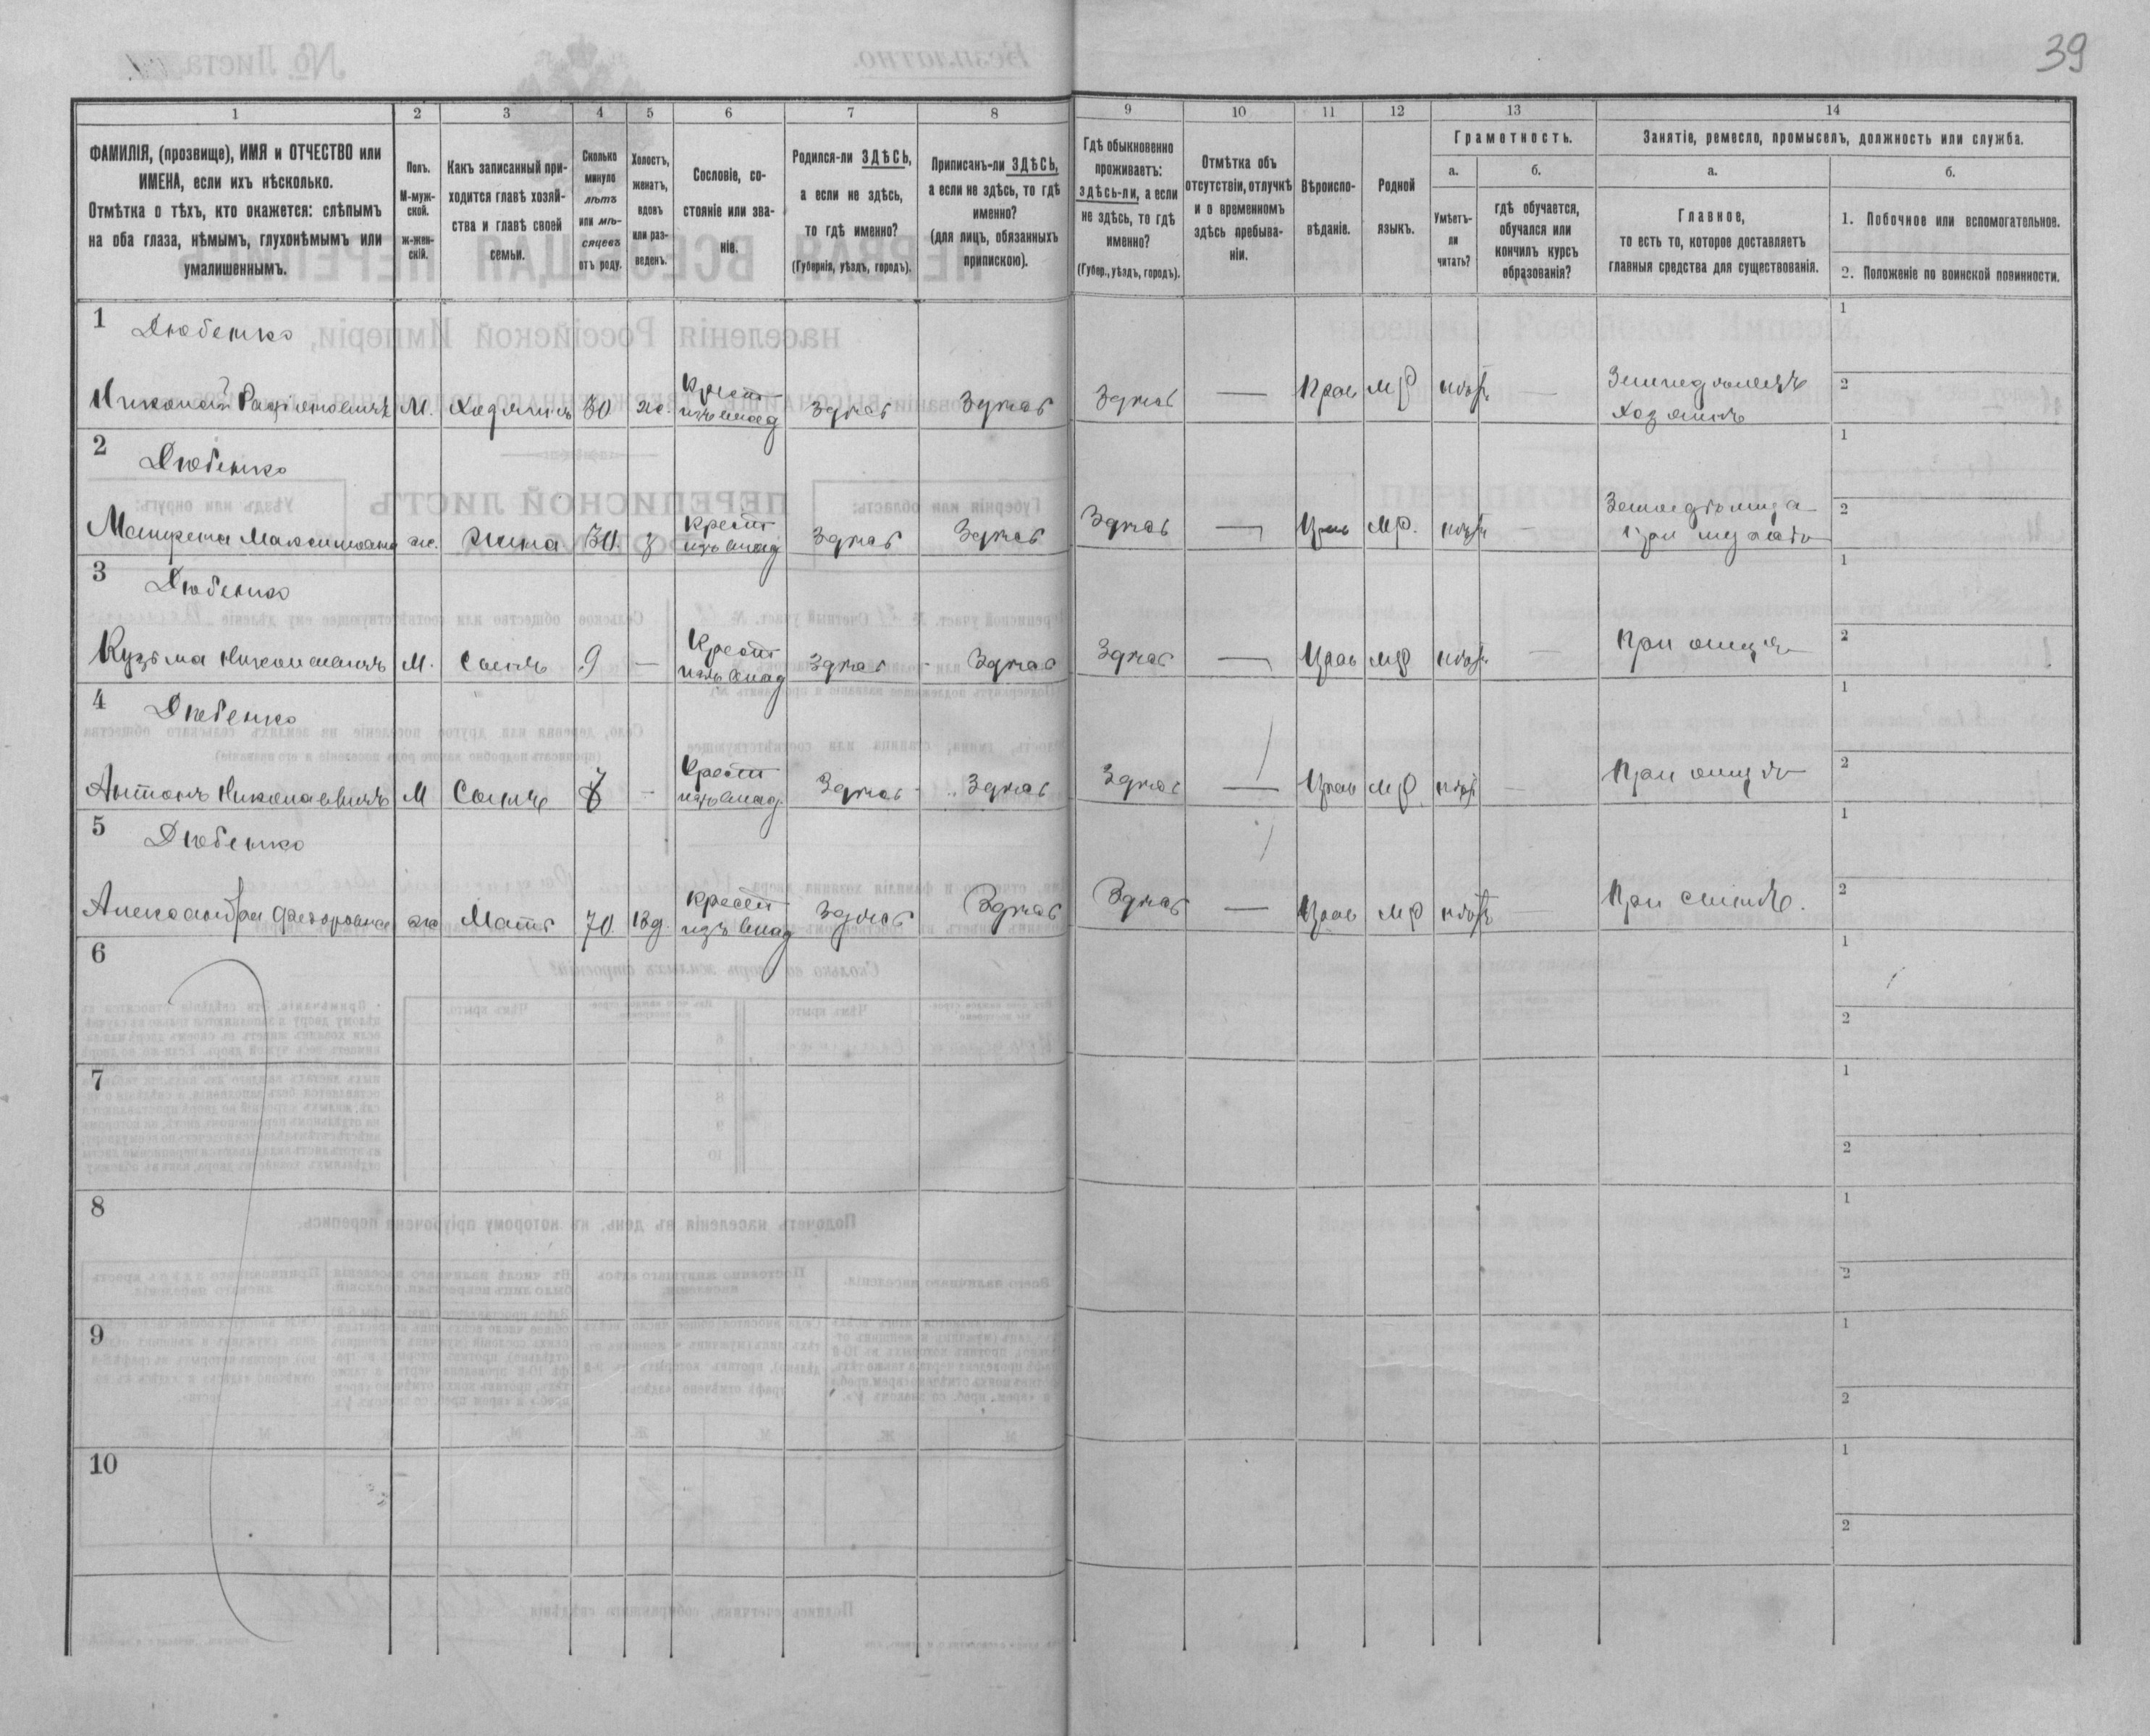 39
1 2 3 4 5 6 7 8 9 10 11 12 13 14
ФАМИЛІЯ, (прозвище), ИМЯ и ОТЧЕСТВО или
ИМЕНА, если ихъ нѣсколько.
Отмѣтка о тѣхъ, кто окажется: слѣпымъ
на оба глаза, нѣмымъ, глухонѣмымъ или
умалишеннымъ.
Полъ.
М-муж-
ской.
ж-жен-
скій.
Какъ записанный при-
ходится главѣ хозяй-
ства и главѣ своей
семьи.
Сколько
минуло
лѣтъ
или мѣ-
сяцевъ
отъ роду.
Холостъ,
женатъ,
вдовъ
или раз-
веденъ.
Сословіе, со-
стояніе или зва-
ніе.
Родился-ли ЗДѢСЬ,
а если не здѣсь,
то гдѣ именно?
(Губернія, уѣздъ, городъ).
Приписанъ-ли ЗДѢСЬ,
а если не здѣсь, то гдѣ
именно?
(для лицъ, обязанныхъ
припискою).
Гдѣ обыкновенно
проживаетъ:
здѣсь-ли, а если
не здѣсь, то гдѣ
именно?
(Губер., уѣздъ, городъ).
Отмѣтка объ
отсутствіи, отлучкѣ
и о временномъ
здѣсь пребыва-
ніи.
Вѣроиспо-
вѣданіе.
Родной
языкъ.
Грамотность.
а.
Умѣетъ-
ли
читать?
б.
гдѣ обучается,
обучался или
кончилъ курсъ
образованія?
Занятіе, ремесло, промыселъ, должность или служба.
а.
Главное,
то есть то, которое доставляетъ
главныя средства для существованія.
б.
1. Побочное или вспомогательное.
2. Положеніе по воинской повинности.
1 Дюбенко 1
Николай Радіоновичъ М. Хозяинъ 30 ж. Крест Здѣсь Здѣсь Здѣсь — Прав МР нѣтъ — Земледѣлецъ 2
изъ влад Хозяинъ
2 Дюбенко 1
Матрена Максимовна ж. Жена 30. з Крест Здѣсь Здѣсь Здѣсь — Прав МР. нѣтъ — 2
изъ влад При мужѣ
3 Дюбенко 1
Кузьма Николаевичъ М. Сынъ 9 — Крест Здѣсь Здѣсь Здѣсь — Прав МР нѣтъ — При отцѣ 2
изъ влад
4 Дюбенко 1
Антонъ Николаевичъ М Сынъ 7 — Крест Здѣсь Здѣсь Здѣсь — Прав МР нѣтъ — При отцѣ 2
изъ влад.
5 Дюбенко 1
Александра Федоровна ж Мать 70 вд. Крест Здѣсь Здѣсь Здѣсь — Прав МР нѣтъ — При сынѣ. 2
изъ влад
6 1
2
7 1
2
8 1
2
9 1
2
10 1
2